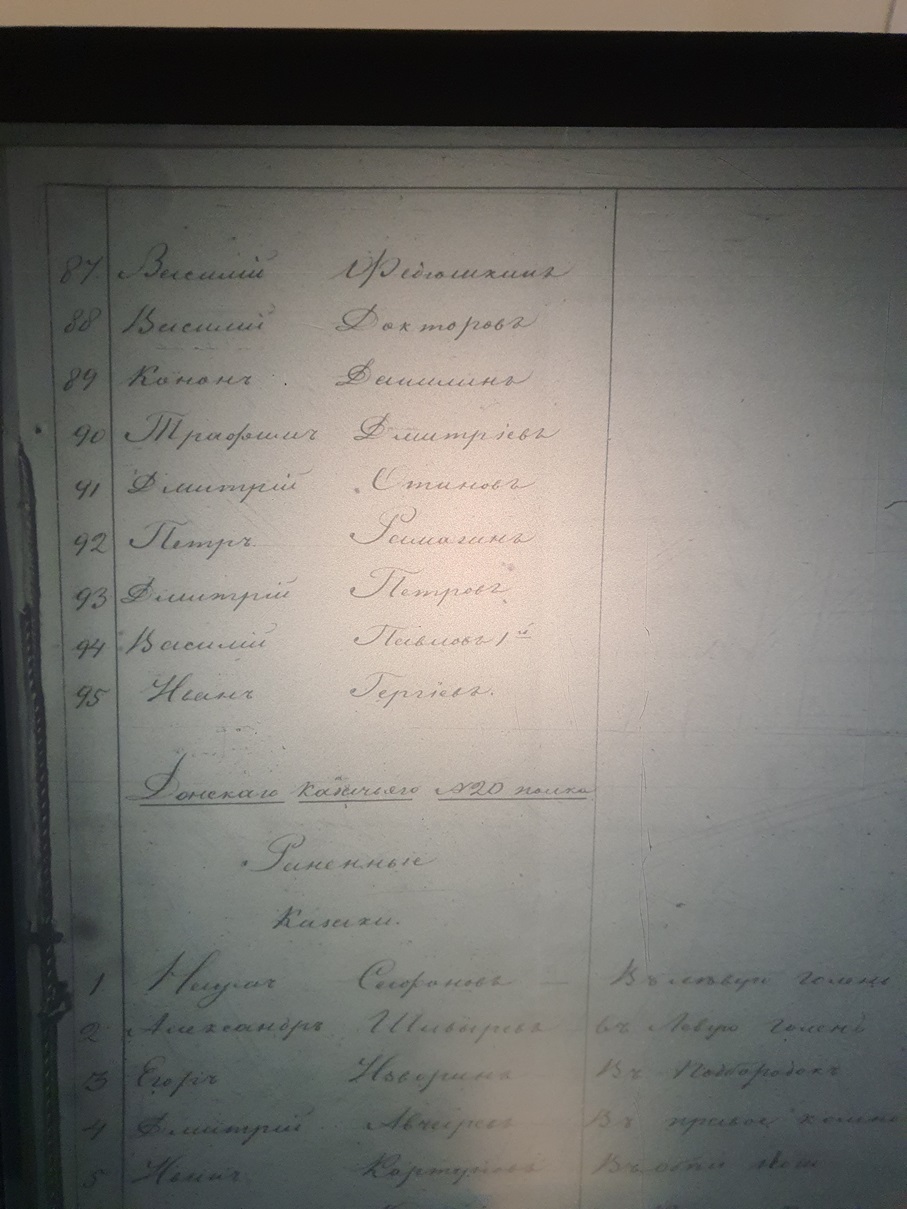 87 Василій Федюшкинъ
88 Василій Докторовъ
89 Кононъ Данилинъ
90 Трафимъ Дмитріевъ
91 Дмитрій
92 Петръ
93 Дмитрій Петровъ
94 Василій Павловъ 1й
95 Иванъ Гергіевъ.
Донскаго казачьяго №20 полка
Раненные
Казаки.
1 Сафоновъ — Въ лѣвую голень
2 Александръ Швыревъ въ Левую голень
3 Егоръ Въ Подбородокъ
4 Дмитрій Въ правое колено
5 Иванъ Въ